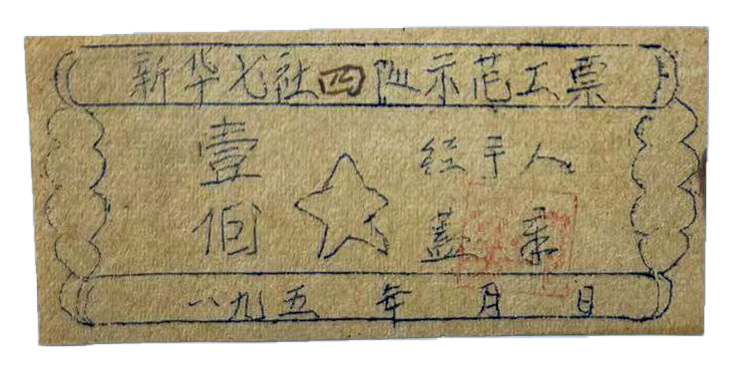 新华七社四队示范工票
壹
佰
经手人
盖章
一九五 年 月 日